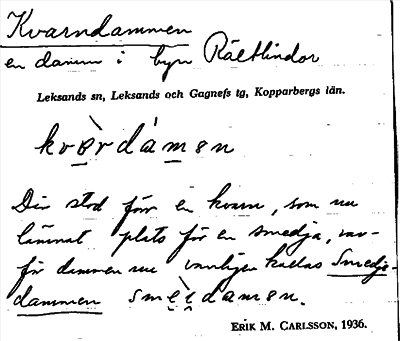 Kvarndammen
en damm i byn Rältlindor
Leksands sn, Leksands och Gagnefs tg, Kopparbergs län.
kvàrdámən
Där stod förr en kvarn, som nu
lämnat plats för en smedja, var-
för dammen nu vanligen kallas Smedje-
dammen smèɪdamən.
ERIK M. CARLSSON, 1936.